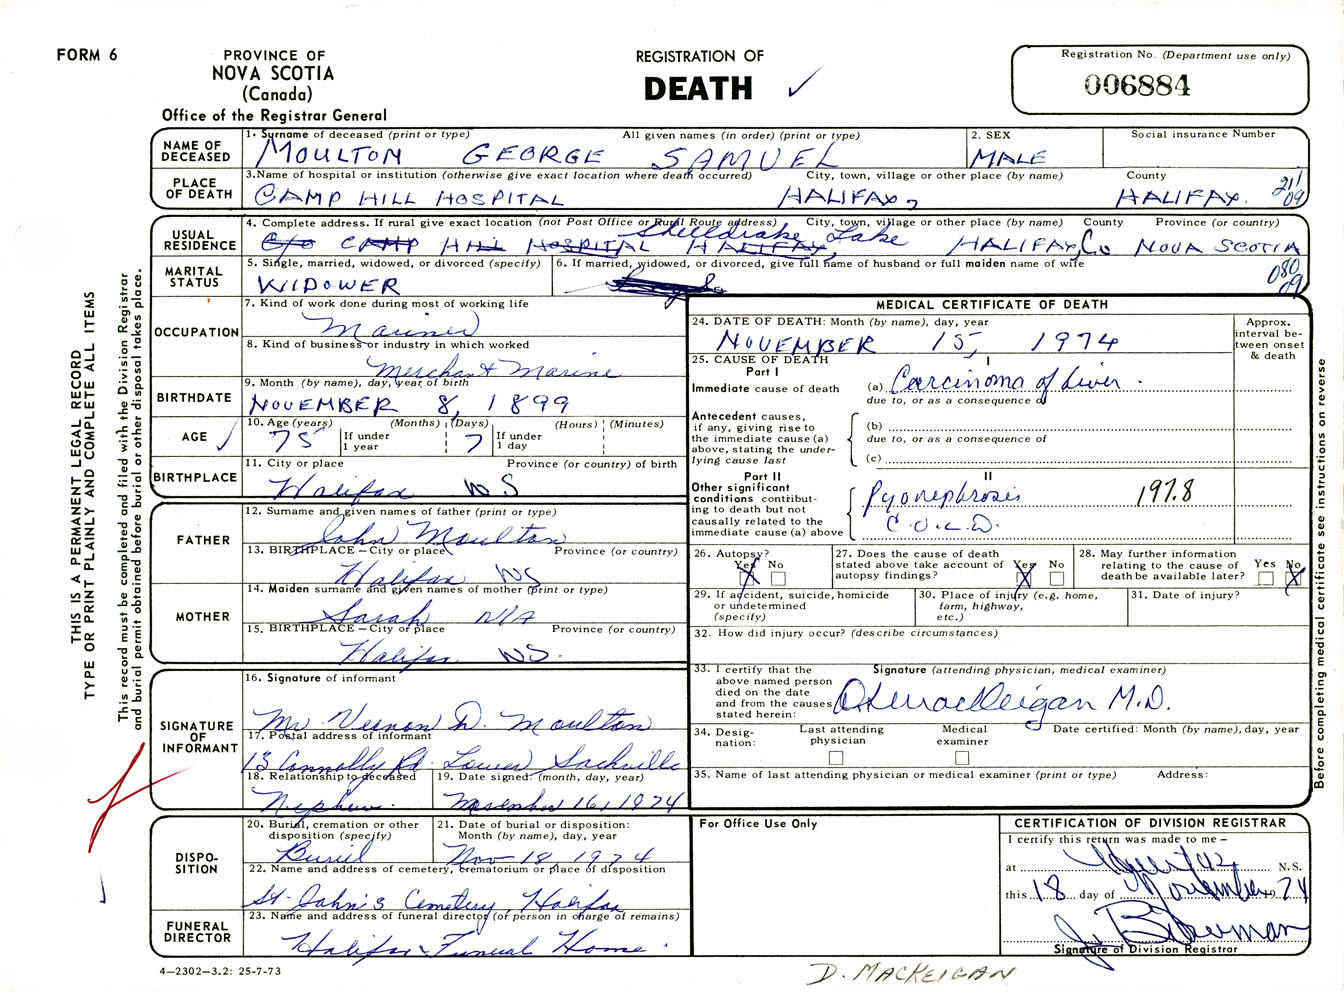 FORM 6
PROVINCE OF
NOVA SCOTIA
(Canada)
Office of the Registrar General
REGISTRATION OF
DEATH ✓
Registration No. (Department use only)
006884
NAME OF DECEASED
1. Surname of deceased (print or type) All given names (in order) (print or type)
MOULTON GEORGE SAMUEL
2. SEX
MALE
Social insurance Number
PLACE OF DEATH
3. Name of hospital or institution (otherwise give exact location where death occurred) City, town, village or other place (by name) County
CAMP HILL HOSPITAL HALIFAX, HALIFAX. 211 09
USUAL RESIDENCE
4. Complete address. If rural give exact location (not Post Office or Rural Route address) City, town, village or other place (by name) County Province (or country)
Shelldrake Lake
C/O CAMP HILL HOSPITAL HALIFAX, HALIFAX Co NOVA SCOTIA
080 09
MARITAL STATUS
5. Single, married, widowed, or divorced (specify)
WIDOWER
6. If married, widowed, or divorced, give full name of husband or full maiden name of wife
OCCUPATION
7. Kind of work done during most of working life
Mariner
8. Kind of business or industry in which worked
Merchant Marine
BIRTHDATE
9. Month (by name), day, year of birth
NOVEMBER 8, 1899
AGE ✓
10. Age (years) (Months) (Days) (Hours) (Minutes)
75 If under 1 year 7 If under 1 day
BIRTHPLACE
11. City or place Province (or country) of birth
Halifax NS
FATHER
12. Surname and given names of father (print or type)
John Moulton
13. BIRTHPLACE – City or place Province (or country)
Halifax NS
MOTHER
14. Maiden surname and given names of mother (print or type)
Sarah N/A
15. BIRTHPLACE – City or place Province (or country)
Halifax NS.
SIGNATURE OF INFORMANT
16. Signature of informant
Mr Vernon D. Moulton
17. Postal address of informant
13 Connolly Rd. Lower Sackville
18. Relationship to deceased
Nephew.
19. Date signed: (month, day, year)
November 16, 1974
DISPOSITION
20. Burial, cremation or other disposition (specify)
Buriel
21. Date of burial or disposition: Month (by name), day, year
Nov 18, 1974
22. Name and address of cemetery, crematorium or place of disposition
St. John's Cemetery, Halifax
FUNERAL DIRECTOR
23. Name and address of funeral director (or person in charge of remains)
Halifax Funeral Home.
4–2302–3.2: 25-7-73
MEDICAL CERTIFICATE OF DEATH
24. DATE OF DEATH: Month (by name), day, year
NOVEMBER 15, 1974
Approx. interval between onset & death
25. CAUSE OF DEATH
Part I
I
Immediate cause of death (a) Carcinoma of Liver.
due to, or as a consequence of
Antecedent causes, if any, giving rise to the immediate cause (a) above, stating the underlying cause last
(b)
due to, or as a consequence of
(c)
Part II
II
Other significant conditions contributing to death but not causally related to the immediate cause (a) above
Pyonephrosis 197.8
C.O.L.D.
26. Autopsy?
Yes X No
27. Does the cause of death stated above take account of autopsy findings?
Yes X No
28. May further information relating to the cause of death be available later?
Yes No X
29. If accident, suicide, homicide or undetermined (specify)
30. Place of injury (e.g. home, farm, highway, etc.)
31. Date of injury?
32. How did injury occur? (describe circumstances)
33. I certify that the above named person died on the date and from the causes stated herein:
Signature (attending physician, medical examiner)
D MacKeigan M.D.
34. Designation:
Last attending physician
Medical examiner
Date certified: Month (by name), day, year
35. Name of last attending physician or medical examiner (print or type) Address:
For Office Use Only
CERTIFICATION OF DIVISION REGISTRAR
I certify this return was made to me –
at Halifax N.S.
this 18 day of November 1974
Signature of Division Registrar
D. MACKEIGAN
THIS IS A PERMANENT LEGAL RECORD
TYPE OR PRINT PLAINLY AND COMPLETE ALL ITEMS
This record must be completed and filed with the Division Registrar
and burial permit obtained before burial or other disposal takes place.
Before completing medical certificate see instructions on reverse